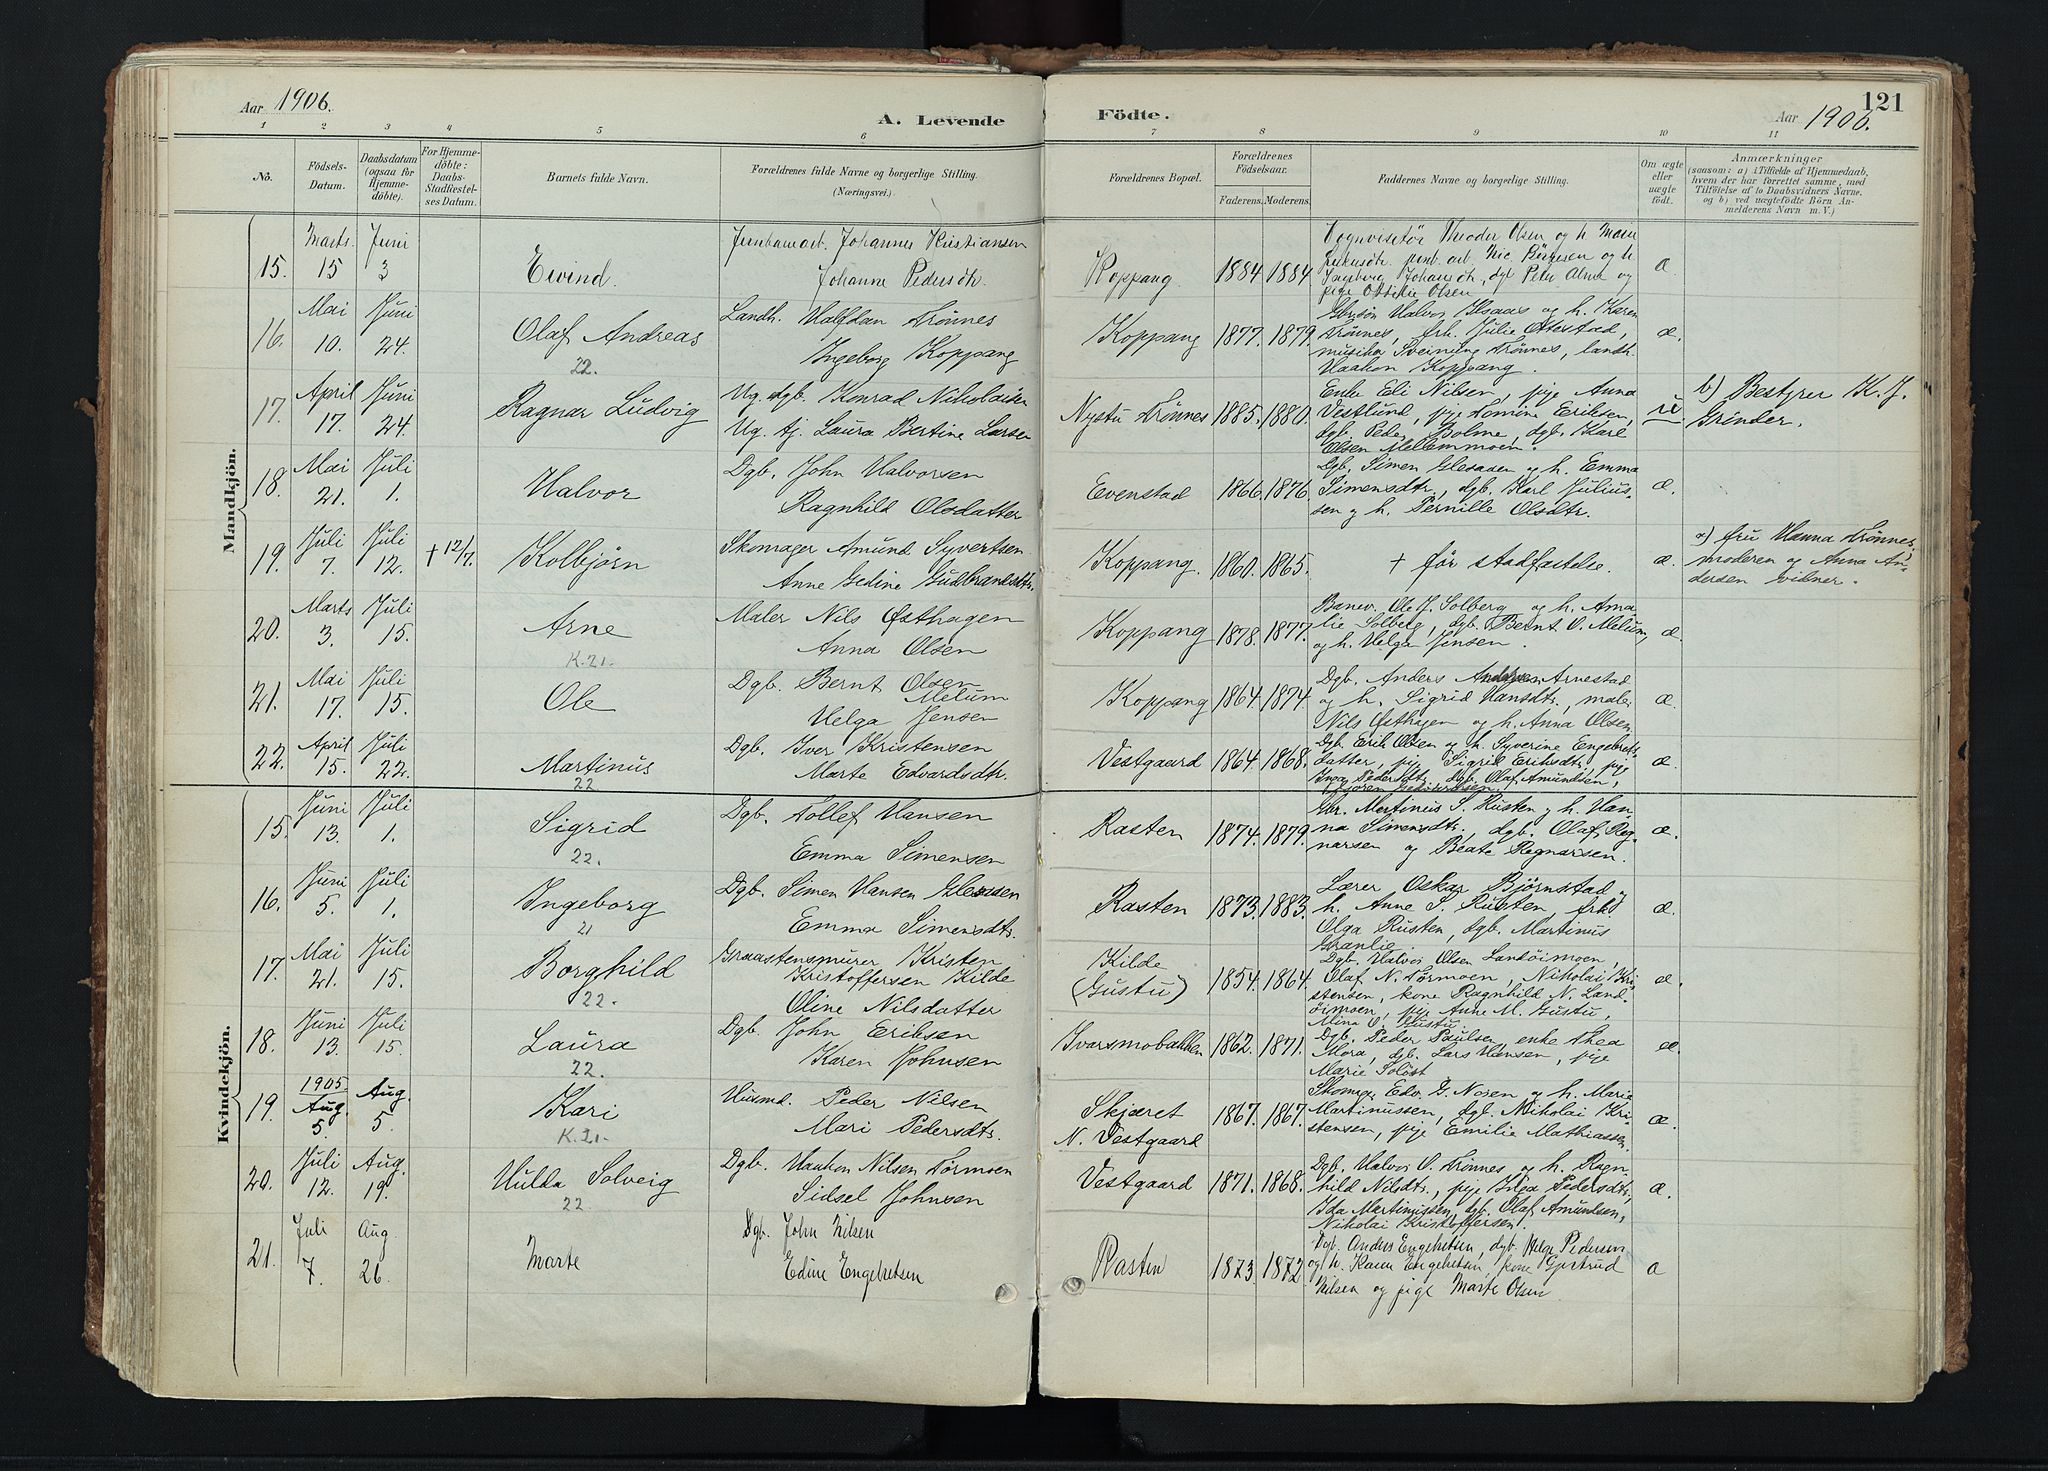 Aar 1906.
A. Levende Födte.
121
Aar 1906.
1 2 3 4 5 6 7 8 9 10 11
No.
Födsels-Datum.
Daabsdatum (ogsaa for Hjemmedöbte).
For Hjemmedöbte: Daabs-Stadfæstelses Datum.
Barnets fulde Navn.
Forældrenes fulde Navne og borgerlige Stilling. (Næringsvei).
Forældrenes Bopæl.
Forældrenes Födselsaar.
Faderens. Moderens.
Faddernes Navne og borgerlige Stilling.
Om ægte eller uægte födt.
Anmærkninger
(saasom: a) i Tilfælde af Hjemmedaab, hvem der har forrettet samme, med Tilföielse af to Daabsvidners Navne, og b) ved uægtefödte Börn Anmelderens Navn m. V.)
Mandkjön.
15. Marts 15 Juni 3 Eivind.
Jernbanearb. Johannes Kristiansen
Johanne Pedersdtr.
Koppang 1884 1884
Vognvisitör Theodor Olsen og h.
Ingeborg Johansdtr, dgb Peter og
pige Olsen
æ
16. Mai 10. Juni 24. Olaf Andreas
22.
Landh. Halfdan Trönnes
Ingeborg Koppang
Koppang 1877. 1879.
Halvor og h. Karen
Trönnes, frk. Julie
musiker Sveinung Trönnes, landh.
Haakon Koppang.
æ.
17. April 17. Juni 24. Ragnar Ludvig
Ug. dgb. Konrad Nikolaisen
Ug. tj. Laura Bertine Larsen
Nystu Trönnes 1885. 1880.
Enke Eli Nilsen, pige Anna
Vestlund, pige Tomine Eriksen,
dgb. Peder Bolme, dgb. Karl
Olsen Mellemmoen.
u
b) Bestyrer K. J.
Grinder.
18. Mai 21. Juli 1. Halvor
Dgb. John Halvorsen
Ragnhild Olsdatter
Evenstad 1866. 1876.
Dgb. Simen Glesaaen og h. Emma
Simensdtr, dgb. Karl Julius-
sen og h. Pernille Olsdtr.
æ.
19. Juli 7. Juli 12. + 12/7. Kolbjörn
Skomager Amund Syvertsen
Anne Gedine Gudbrandsdtr.
Koppang. 1860. 1865.
+ för stadfæstelse.
æ.
a) fru Hanna Trönnes,
moderen og Anna An-
dersen vidner.
20. Marts 3. Juli 15. Arne
K. 21.
Maler Nils Østhagen
Anna Olsen
Koppang 1878. 1877.
Banev. Ole J. Solberg og h. Ama-
lie Solberg, dgb. Bernt O. Melum,
og h. Helga Jensen.
æ.
21. Mai 17. Juli 15. Ole
Dgb. Bernt Olsen
Melum
Helga Jensen
Koppang 1864. 1874.
Dgb. Anders Arnestad
og h. Sigrid Hansdtr., maler
Nils Østhagen og h. Anna Olsen
æ.
22. April 15. Juli 22. Martinus
22
Dgb. Iver Kristensen
Marte Edvardsdtr.
Vestgaard 1864. 1868.
Dgb. Erik Olsen og h. Syverine Engebrets-
datter, pige Sigrid Eriksdtr, pige
Inga Pedersdtr, dgb. Olaf Amundsen,
æ.
Kvindekjön.
15. Juni 13. Juli 1. Sigrid
22.
Dgb. Tollef Hansen
Emma Simensen
Rasten 1874. 1879.
Gbr. Martinius S. Rusten og h. Han-
na Simensdtr., dgb. Olaf Rag-
narsen og Beate Ragnarsen.
æ.
16. Juni 5. Juli 1. Ingeborg
21
Dgb. Simen Hansen Glesaaen
Emma Simensdtr.
Rasten 1873. 1883.
Lærer Oskar Björnstad og
h. Anne S. Rusten, frk.
Olga Rusten, dgb. Martinus
Granlie.
æ.
17. Mai 21. Juli 15. Borghild
22.
Graastensmurer Kristen
Kristoffersen Kilde
Oline Nilsdatter
Kilde
(Gustu)
1854. 1864.
Dgb. Halvor Olsen Landöimoen,
Olaf N. Tørmoen, Nikolai Kri-
stensen, kone Ragnhild N. Land-
öimoen, pige Anne M. Gustu,
Mina O. Gustu
æ.
18. Juni 13. Juli 15. Laura
22.
Dgb. John Eriksen
Karen Johnsen
Ivarsmobakken 1862. 1871.
Dgb. Peder Paulsen, enke Thea
Mora, dgb. Lars Hansen, pige
Marie Soløst
æ.
19. 1905 Aug. 5. Aug. 5. Kari
K. 21.
Husmd. Peder Nilsen
Mari Pedersdtr.
Skjæret
N. Vestgaard
1867. 1867.
Skomag. Edv. G. Nosen og h. Marie
Martinussen, dgb. Nikolai Kri-
stensen, pige Emilie Mathiassen
æ.
20. Juli 12. Aug. 19. Hulda Solveig
22.
Dgb. Haakon Nilsen Tørmoen
Sidsel Johnsen
Vestgaard 1871. 1868.
Dgb. Halvor O. Trönnes og h. Ragn-
hild Nilsdtr., pige Inga Pedersdtr,
Ida Martinussen, dgb. Olaf Amundsen,
Nikolai Kristoffersen.
æ.
21. Juli 7. Aug. 26. Marte
Dgb. John Nilsen
Edine Engebretsen
Rasten 1873. 1872
Dgb. Anders Engebretsen, dgb. Helge Pedersen
og h. Karen Engebretsen, kone Gjertrud
Nilsen og pige Marte Olsen
æ